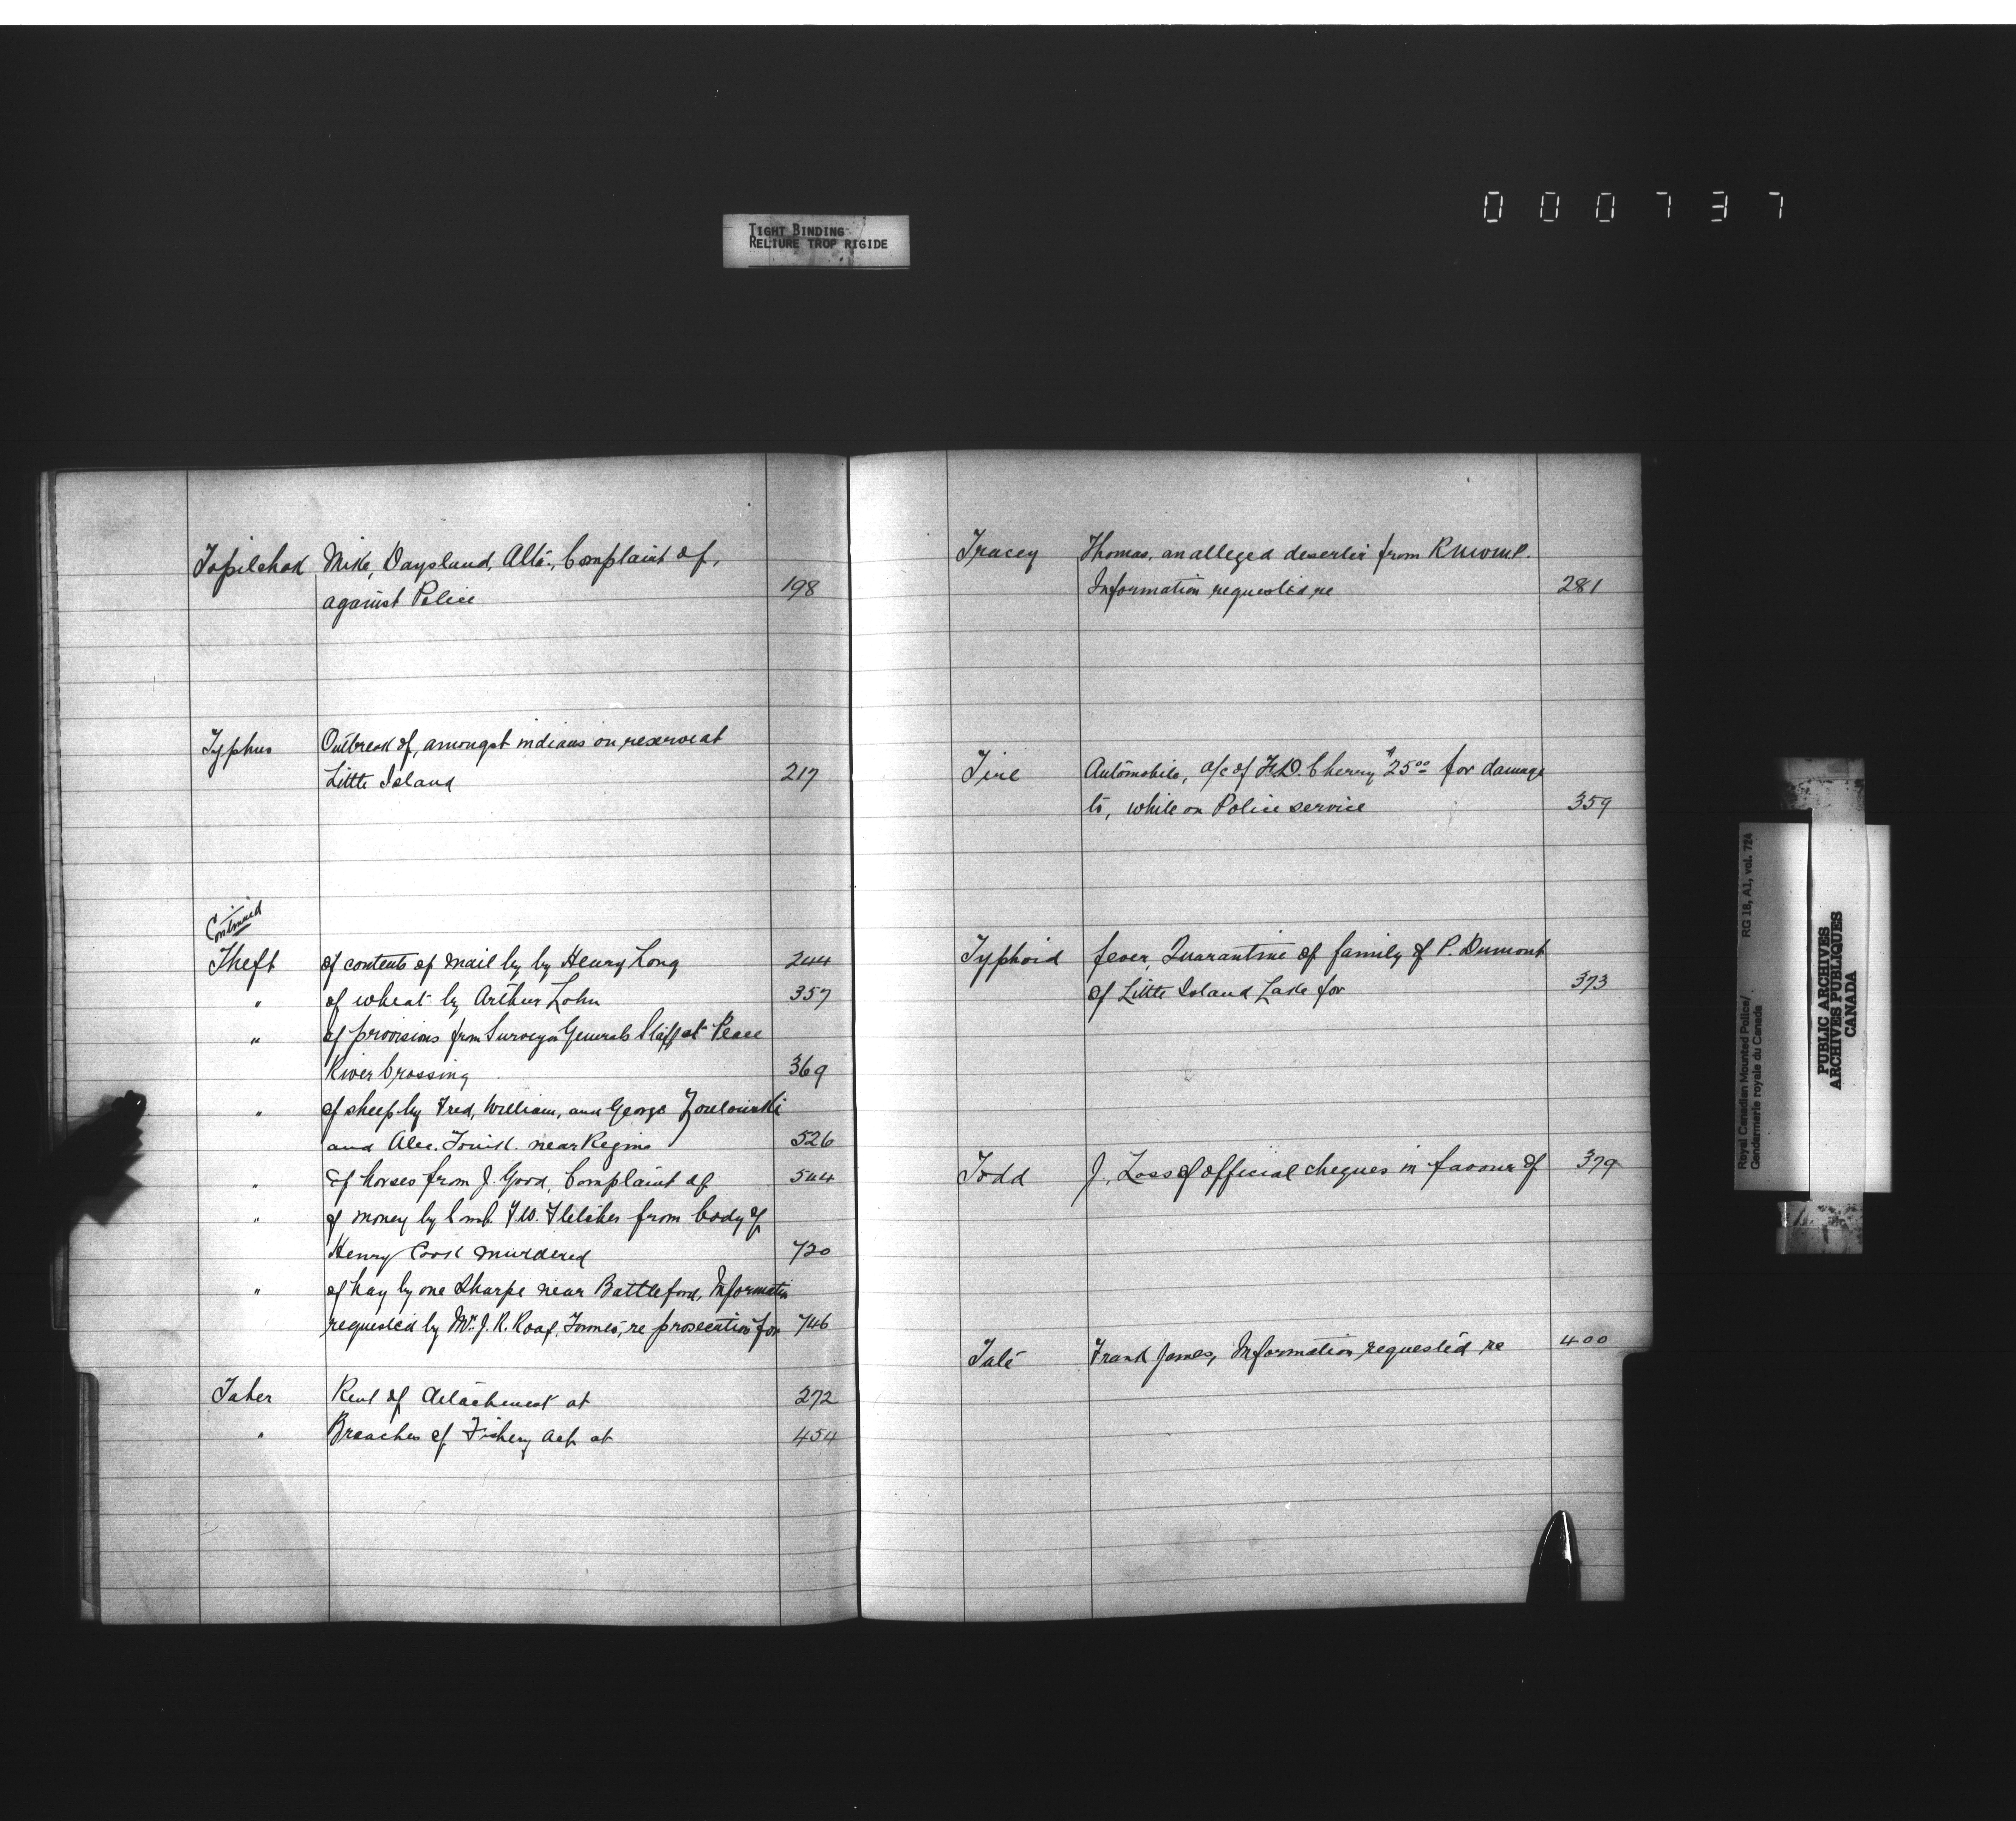 000737
TIGHT BINDING
RELIURE TROP RIGIDE
Topilchak Mike, Daysland, Alta., Complaint of,
against Police 198
Typhus Outbreak of, amongst indians on reserve at
Little Island 217
Continued
Theft of contents of mail by by Henry Long 244
" of wheat by Arthur Lohn 357
" of provisions from Surveyor Generals Staff at Peace
River Crossing 369
" of sheep by Fred, William, and George
and Alec. near Regina 526
" of horses from J. Good, Complaint of 544
" of money by Comb. F.W. Fletcher from body of
Henry Cook murdered 720
" of hay by one Sharpe near Battleford, Information
requested by Mr. J. R. Roaf, re prosecution for 746
Taber Rent of detachment at 272
" Breaches of Fishery Act at 454
Tracey Thomas, an alleged deserter from RNWMP.
Information requested re 281
Tire Automobile, a/c of F.D. Cherry $25.00 for damage
to, while on Police service 359
Typhoid fever, Quarantine of family of P. Dumont
of Little Island Lake for 373
Todd J., Loss of official cheques in favour of 379
Tate Frank James, Information requested re 400
Royal Canadian Mounted Police/
Gendarmerie royale du Canada
RG 18, A1, vol. 724
PUBLIC ARCHIVES
ARCHIVES PUBLIQUES
CANADA